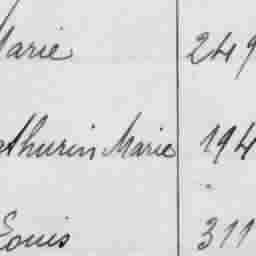 Marie 249
athurin Marie 194
Louis 311